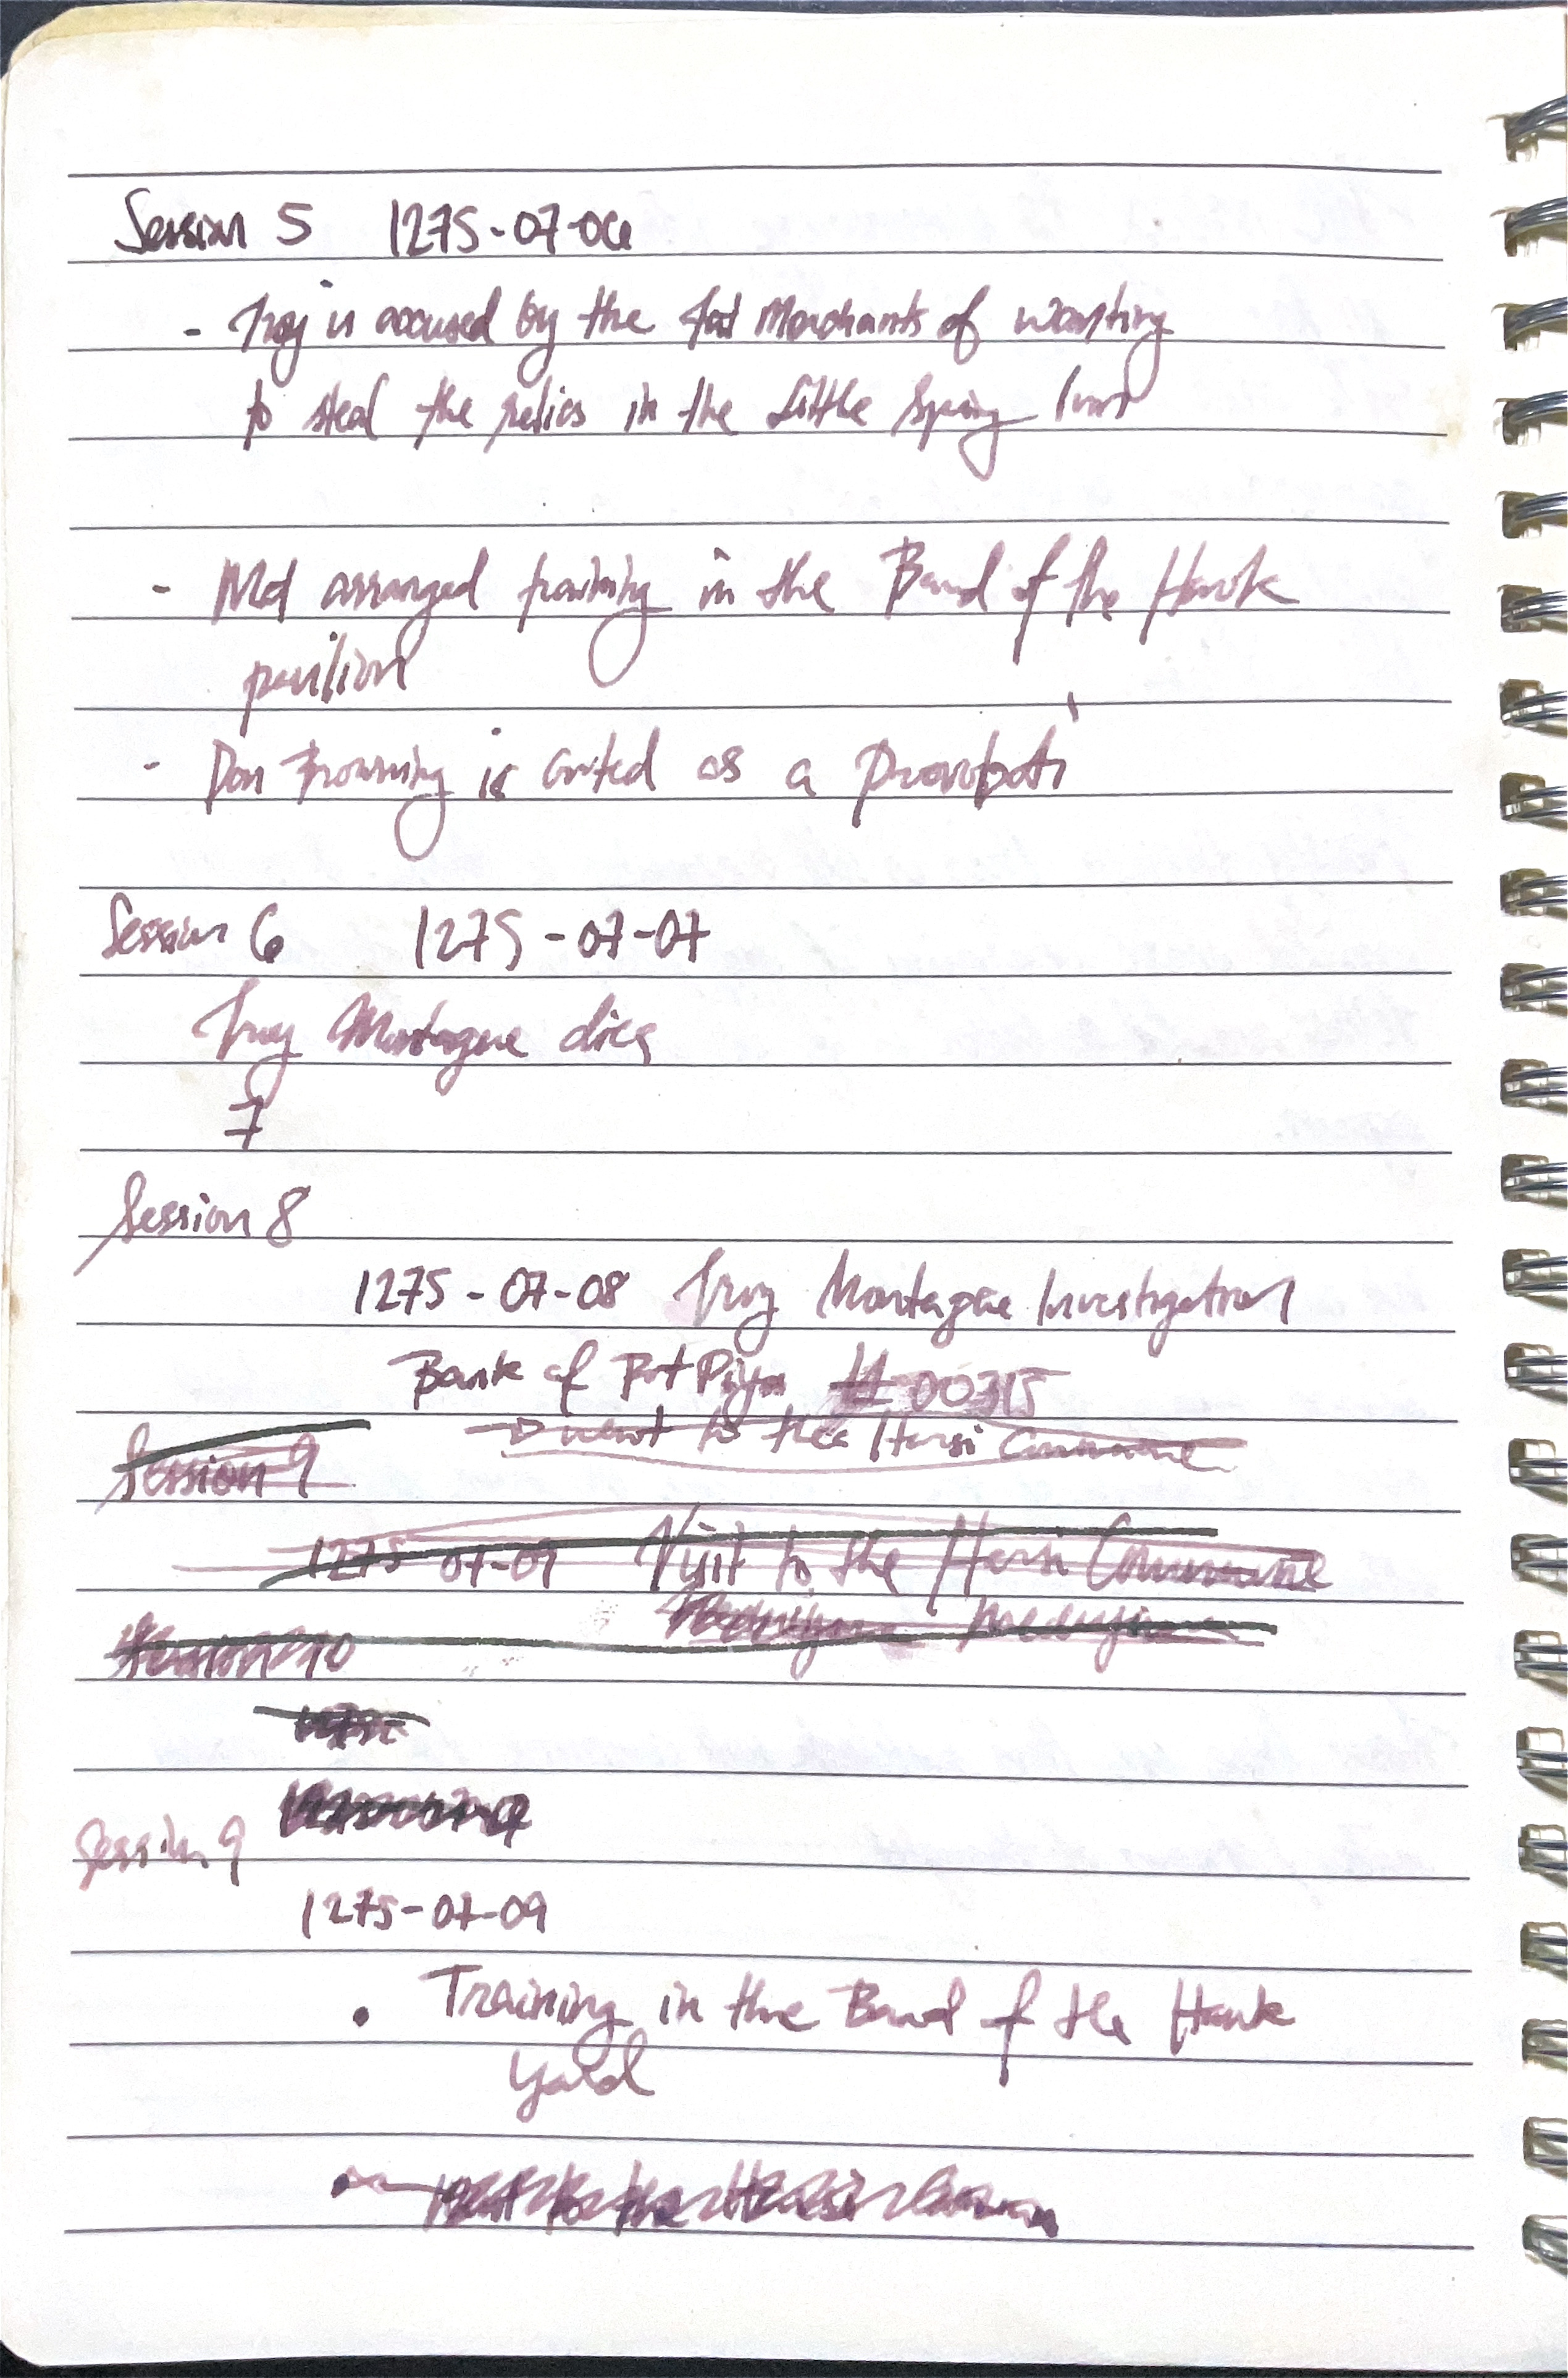 Session 5 1275-07-06
- Troy is accused by the Merchants of wanting
to steal the relics in the Little Spring Inn
- Met arranged training in the Band of the Hawk
pavilion
- Don Browning is as a
Session 6 1275-07-07
Troy Montague dies
7
Session 8
1275-07-08 Troy Montague Investigation
Bank of #00315
→ went to the Harsi Commune
Session 9
1275-07-09 Visit to the Harsi Commune
Session 9
1275-07-09
• Training in the Band of the Hawk
yard